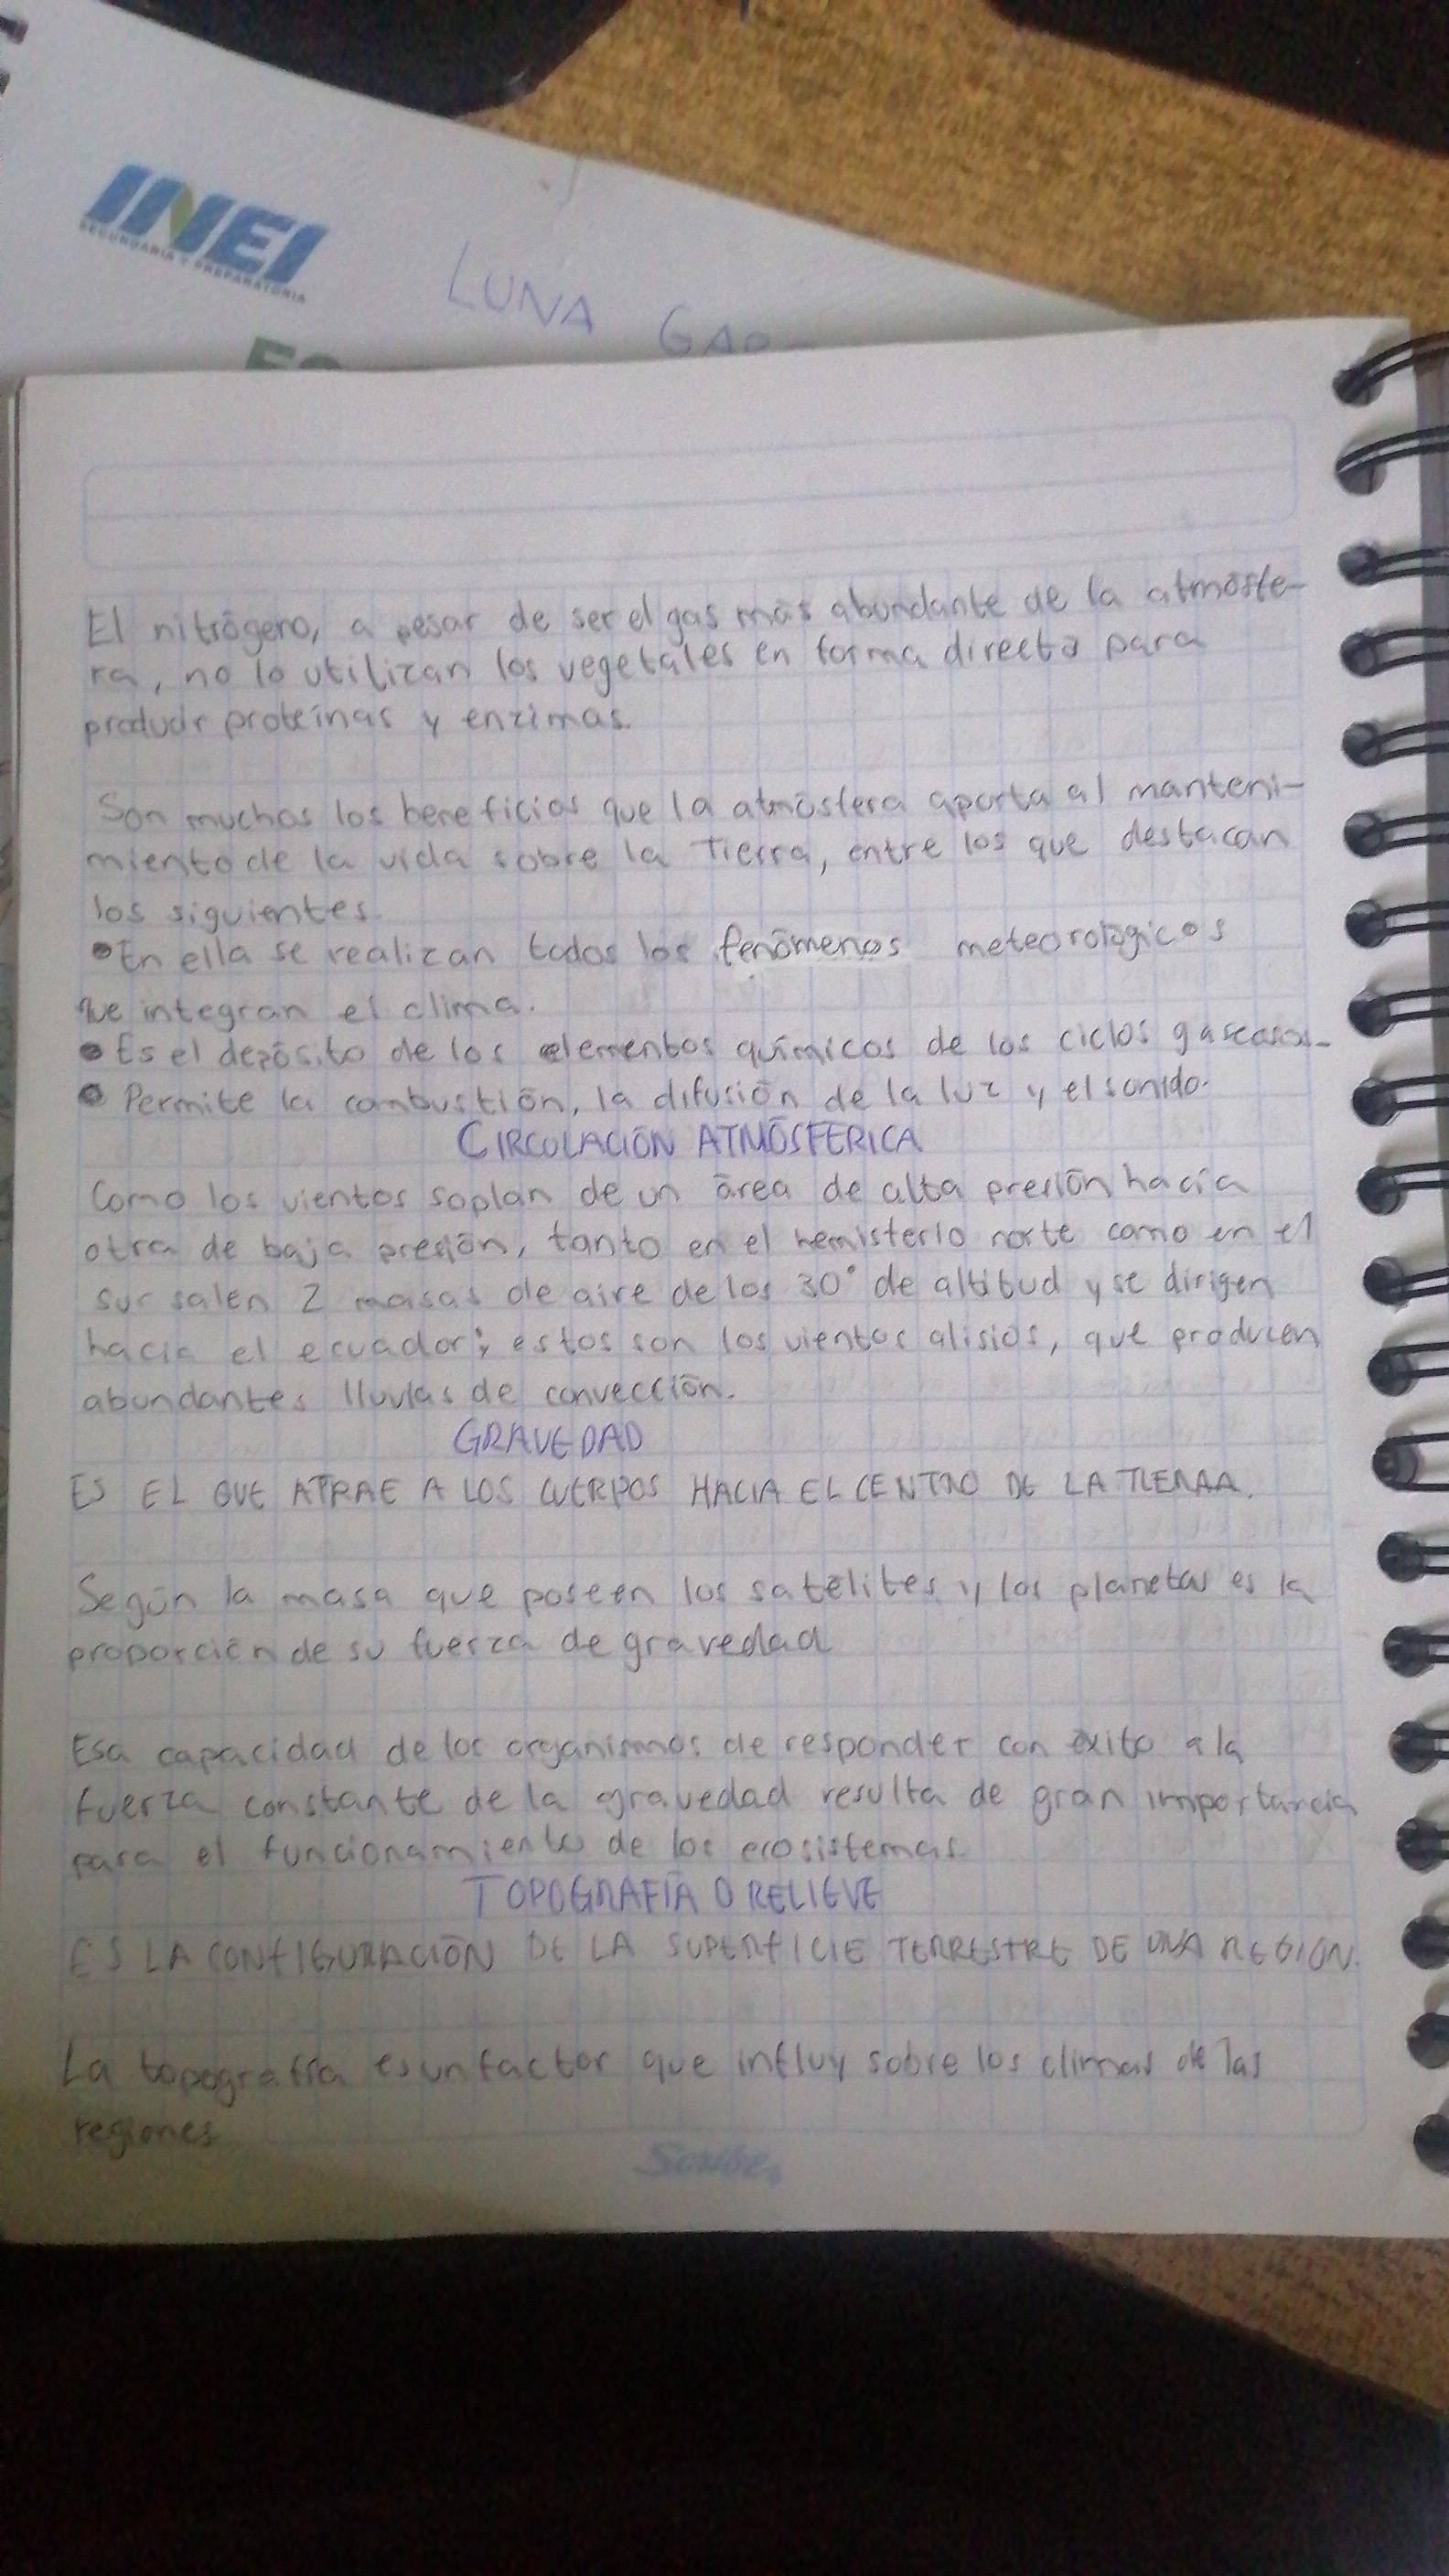 INEI
SECUNDARIA Y PREPARATORIA
LUNA
El nitrógeno, a pesar de ser el gas más abundante de la atmósfe-
ra, no lo utilizan los vegetales en forma directa para
producir proteínas y enzimas.
Son muchos los beneficios que la atmósfera aporta al manteni-
miento de la vida sobre la Tierra, entre los que destacan
los siguientes.
• En ella se realizan todos los fenómenos meteorológicos
que integran el clima.
• Es el depósito de los elementos químicos de los ciclos gaseosos.
• Permite la combustión, la difusión de la luz y el sonido.
CIRCULACIÓN ATMÓSFERICA
Como los vientos soplan de un área de alta presión hacia
otra de baja presión, tanto en el hemisferio norte como en el
sur salen 2 masas de aire de los 30° de altitud y se dirigen
hacia el ecuador; estos son los vientos alisios, que producen
abundantes lluvias de convección.
GRAVEDAD
ES EL QUE ATRAE A LOS CUERPOS HACIA EL CENTRO DE LA TIERRA.
Según la masa que poseen los satélites y los planetas es la
proporción de su fuerza de gravedad
Esa capacidad de los organismos de responder con éxito a la
fuerza constante de la gravedad resulta de gran importancia
para el funcionamiento de los ecosistemas.
TOPOGRAFÍA O RELIEVE
ES LA CONFIGURACIÓN DE LA SUPERFICIE TERRESTRE DE UNA REGIÓN.
La topografía es un factor que influy sobre los climas de las
regiones
Scribe